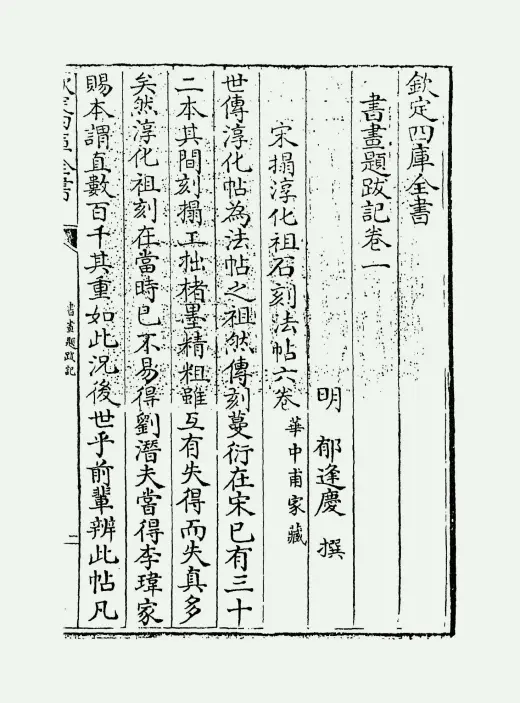 欽定四庫全書
書畫題跋記卷一
明 郁逢慶 撰
宋搨淳化祖石刻法帖六卷 華中甫家藏
世傳淳化帖為法帖之祖然傳刻蔓衍在宋已有三十
二本其間刻搨工拙楮墨精粗雖互有失得而失真多
矣然淳化祖刻在當時已不易得劉潛夫當得李瑋家
賜本謂直數百千其重如此況後世乎前輩辨此帖凡
欽定四庫全書
書畫題跋記
二